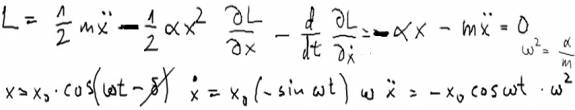 L = 1/2 mẍ - 1/2 αx² ∂L/∂x - d/dt ∂L/∂ẋ = -αx - mẍ = 0 ω² = α/m
x = x₀ · cos(ωt - δ) ẋ = x₀(-sin ωt) ω ẍ = -x₀ cos ωt · ω²